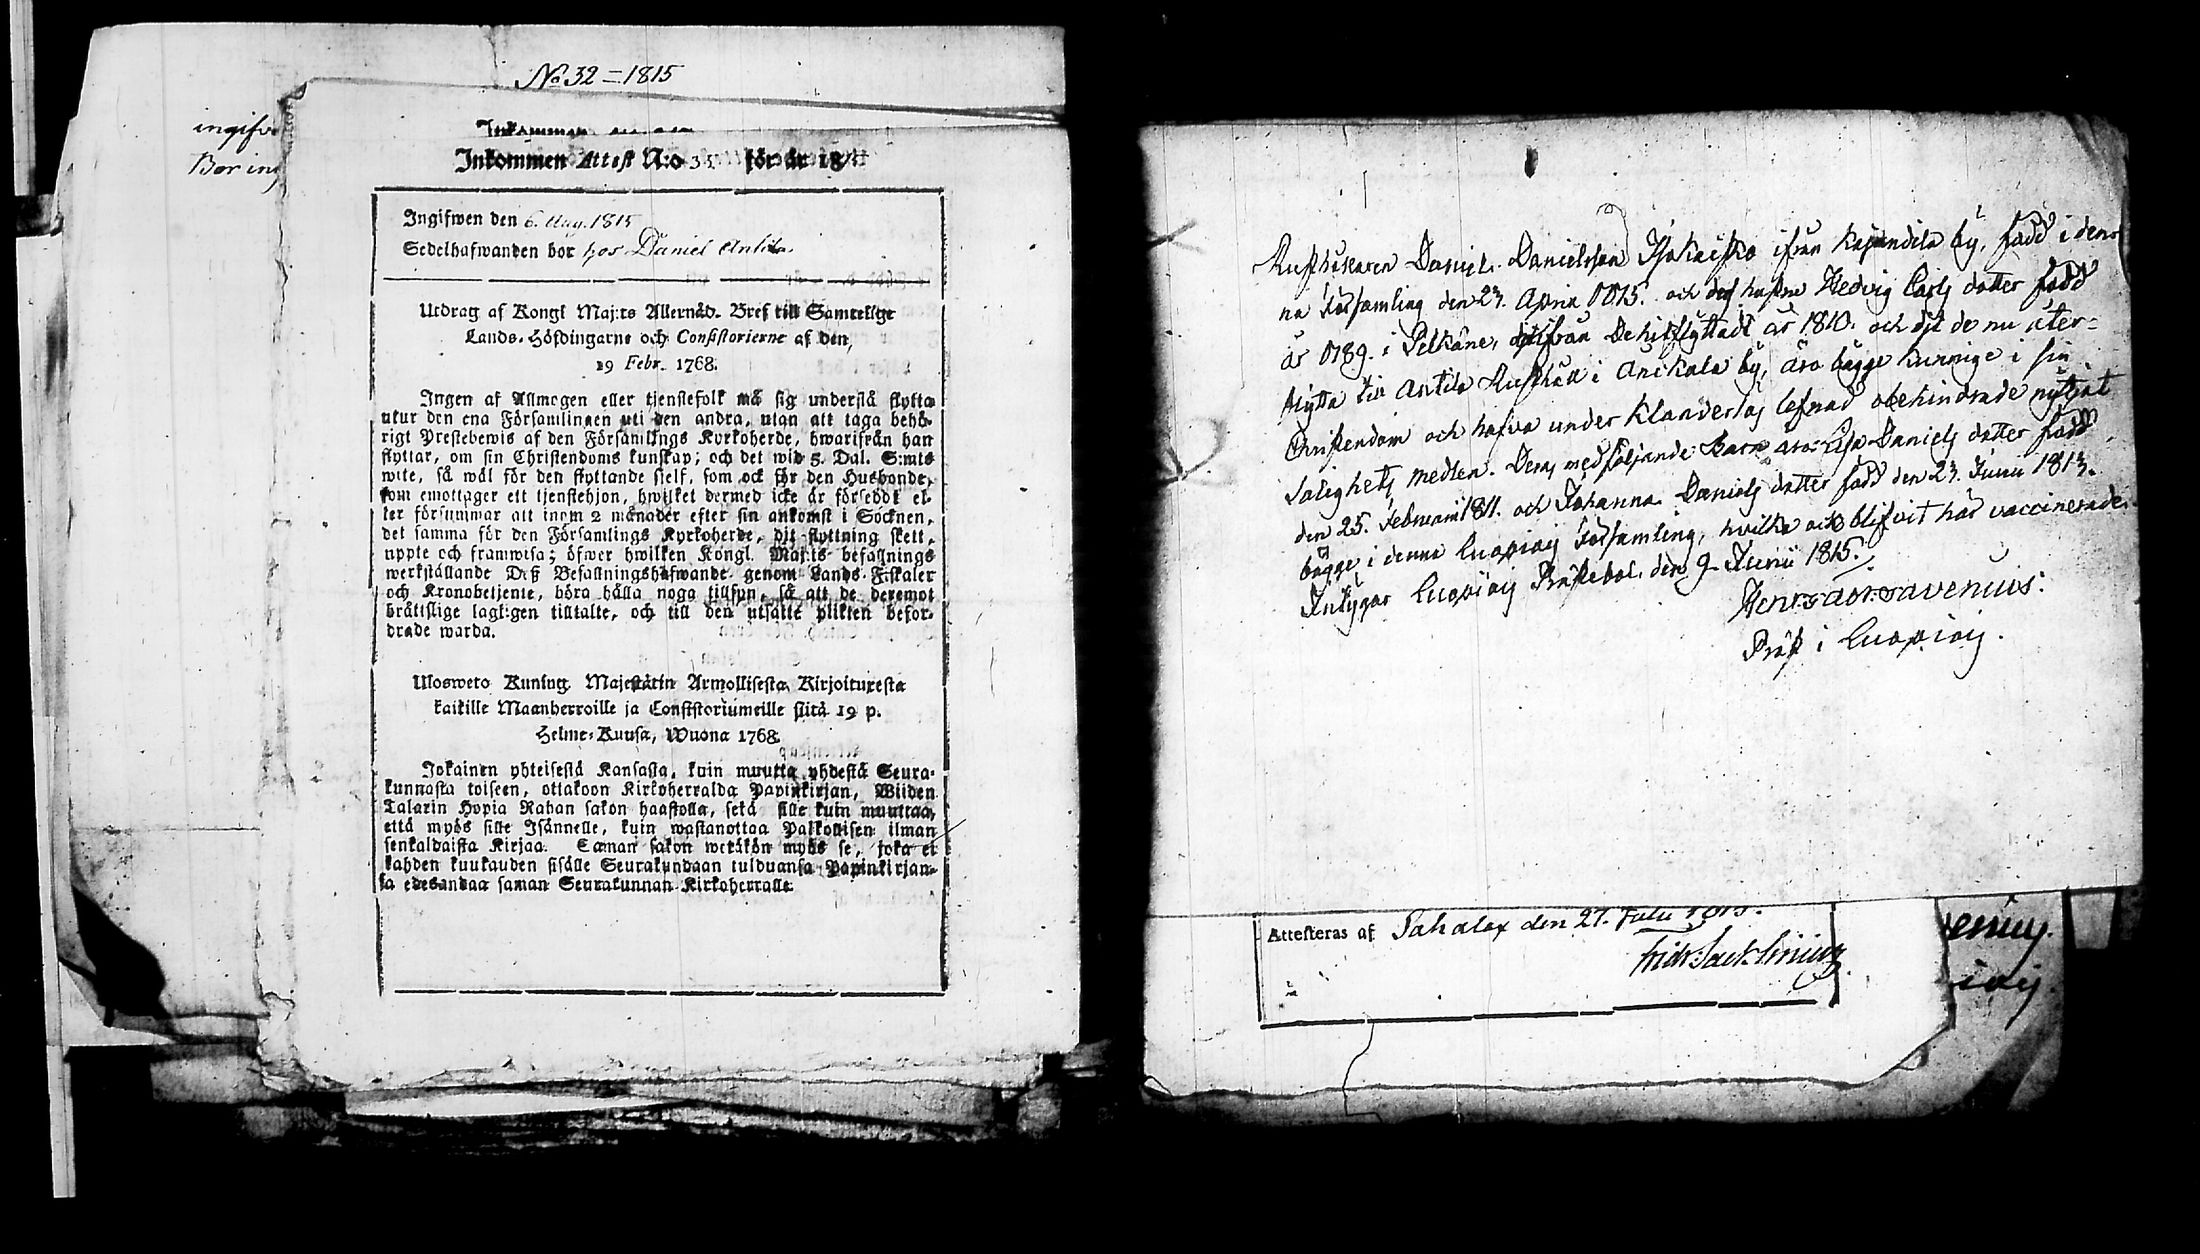 No 32 = 1815
ingifv
Bor ing
Inkommen
Inkommen Attest N:o 35 för år 18
Ingifwen den 6. Aug. 1815
Sedelhafwanden bor hos Daniel Antila
Utdrag af Kongl Maj:ts Allernåd. Bref till Samtelige
Lands-Höfdingarne och Consistorierne af den,
19 Febr. 1768.
Ingen af Allmogen eller tjenstefolk må sig understå flytta
utur den ena Församlingen uti den andra, utan att taga behö-
rigt Prestebewis af den Församlings Kyrkoherde, hwarifrån han
flyttar, om sin Christendoms kunskap; och det wid 5. Dal. S:mts
wite, så wäl för den flyttande sjelf, som ock för den Husbonde,
som emottager ett tjenstehjon, hwilket dermed icke är försedt el-
ler försummar att inom 2 månader efter sin ankomst i Socknen,
det samma för den Församlings Kyrkoherde, dit flyttning skett,
uppte och framwisa; öfwer hwilken Kongl. Maj:ts befallnings
werkställande Deß Befallningshafwande genom Lands-Fiskaler
och Kronobetjente, böra hålla noga tillsyn, så att de deremot
bråttslige lagligen tilltalte, och till den utsatte plikten befor-
drade warda.
Ulosweto Kuning. Majestätin Armollisesta Kirjoituxesta
kaikille Maanherroille ja Consistoriumeille siitä 19 p.
Helme-Kuusa, Wuona 1768.
Jokainen yhteisestä Kansasta, kuin muutta yhdestä Seura-
kunnasta toiseen, ottakoon Kirkoherralda Papinkirjan, Wiiden
Talarin Hopia Rahan sakon haastolla, sekä sille kuin muuttaa,
että myös sille Isännelle, kuin wastanottaa Palkollisen ilman
senkaldaista Kirjaa. Saman sakon wetäkön myös se, joka ei
kahden kuukauden sisälle Seurakundaan tulduansa Papinkirjan-
sa edesandaa saman Seurakunnan Kirkoherralle.
Rusthållaren Daniel Danielsson Isokaisko ifrån Kajandila by, född i den-
na Församling den 23. April och deß hustru Hedvig Carls dotter född
år 1789. i Pelkäne, dädifrån De hitflyttadt år 1810. och dit de nu åter-
flytta till Antila Rusthåll i Anikala by, äro bägge kunnige i sin
Christendom och hafva under klanderlös lefnad obehindrade nyttjat
Salighets medlen. Dem medföljande Barn äro: Lisa Daniels dotter född
den 25. Februarii 1811. och Johanna Daniels dotter född den 23. Junii 1813.
bägge i denna Luopiois Församling, hvilka ock blifvit här vaccinerade.
Intygar Luopiois Prästebol. den 9 Junii 1815.
Henr: Avenius.
Präst i Luopiois.
Attesteras af Sahalax den 27. Julii 1815.
enius.
iois.